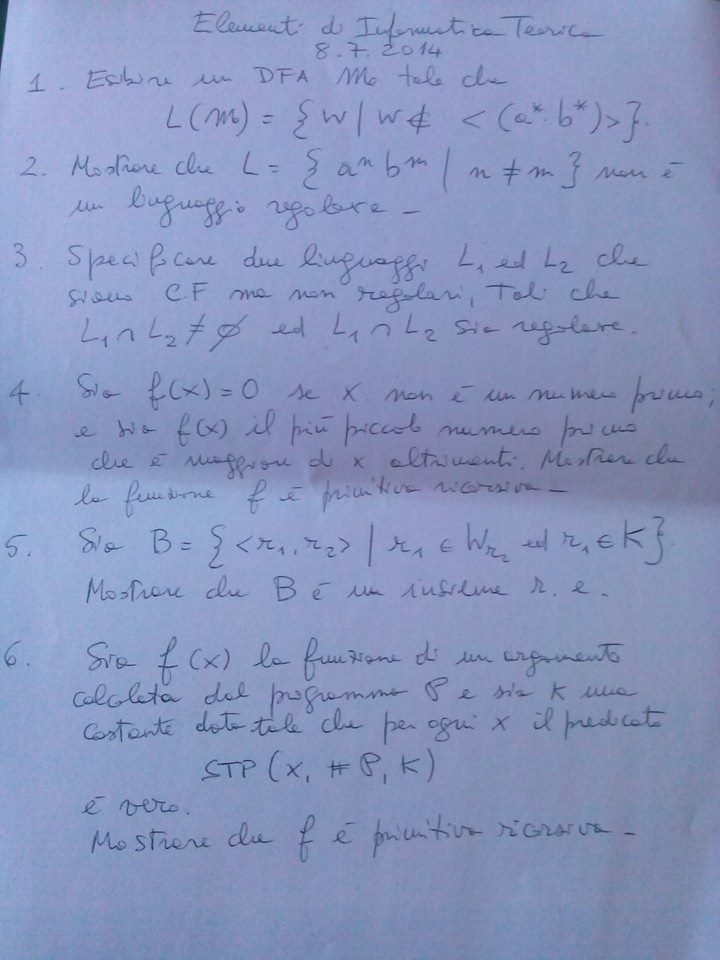 Elementi di Informatica Teorica
8.7.2014
1. Esibire un DFA M tale che
L(M) = { w | w ∉ <(a*·b*)> }.
2. Mostrare che L = { aⁿ bᵐ | n ≠ m } non è
un linguaggio regolare –
3 Specificare due linguaggi L₁ ed L₂ che
siano CF ma non regolari, tali che
L₁ ∩ L₂ ≠ ∅ ed L₁ ∩ L₂ sia regolare.
4 Sia f(x) = 0 se x non è un numero primo;
e sia f(x) il più piccolo numero primo
che è maggiore di x altrimenti. Mostrare che
la funzione f è primitiva ricorsiva –
5. Sia B = { <r₁, r₂> | r₁ ∈ W_r₂ ed r₁ ∈ K }.
Mostrare che B è un insieme r. e.
6. Sia f(x) la funzione di un argomento
calcolata dal programma P e sia K una
costante data tale che per ogni x il predicato
STP (x, #P, K)
è vero.
Mostrare che f è primitiva ricorsiva –